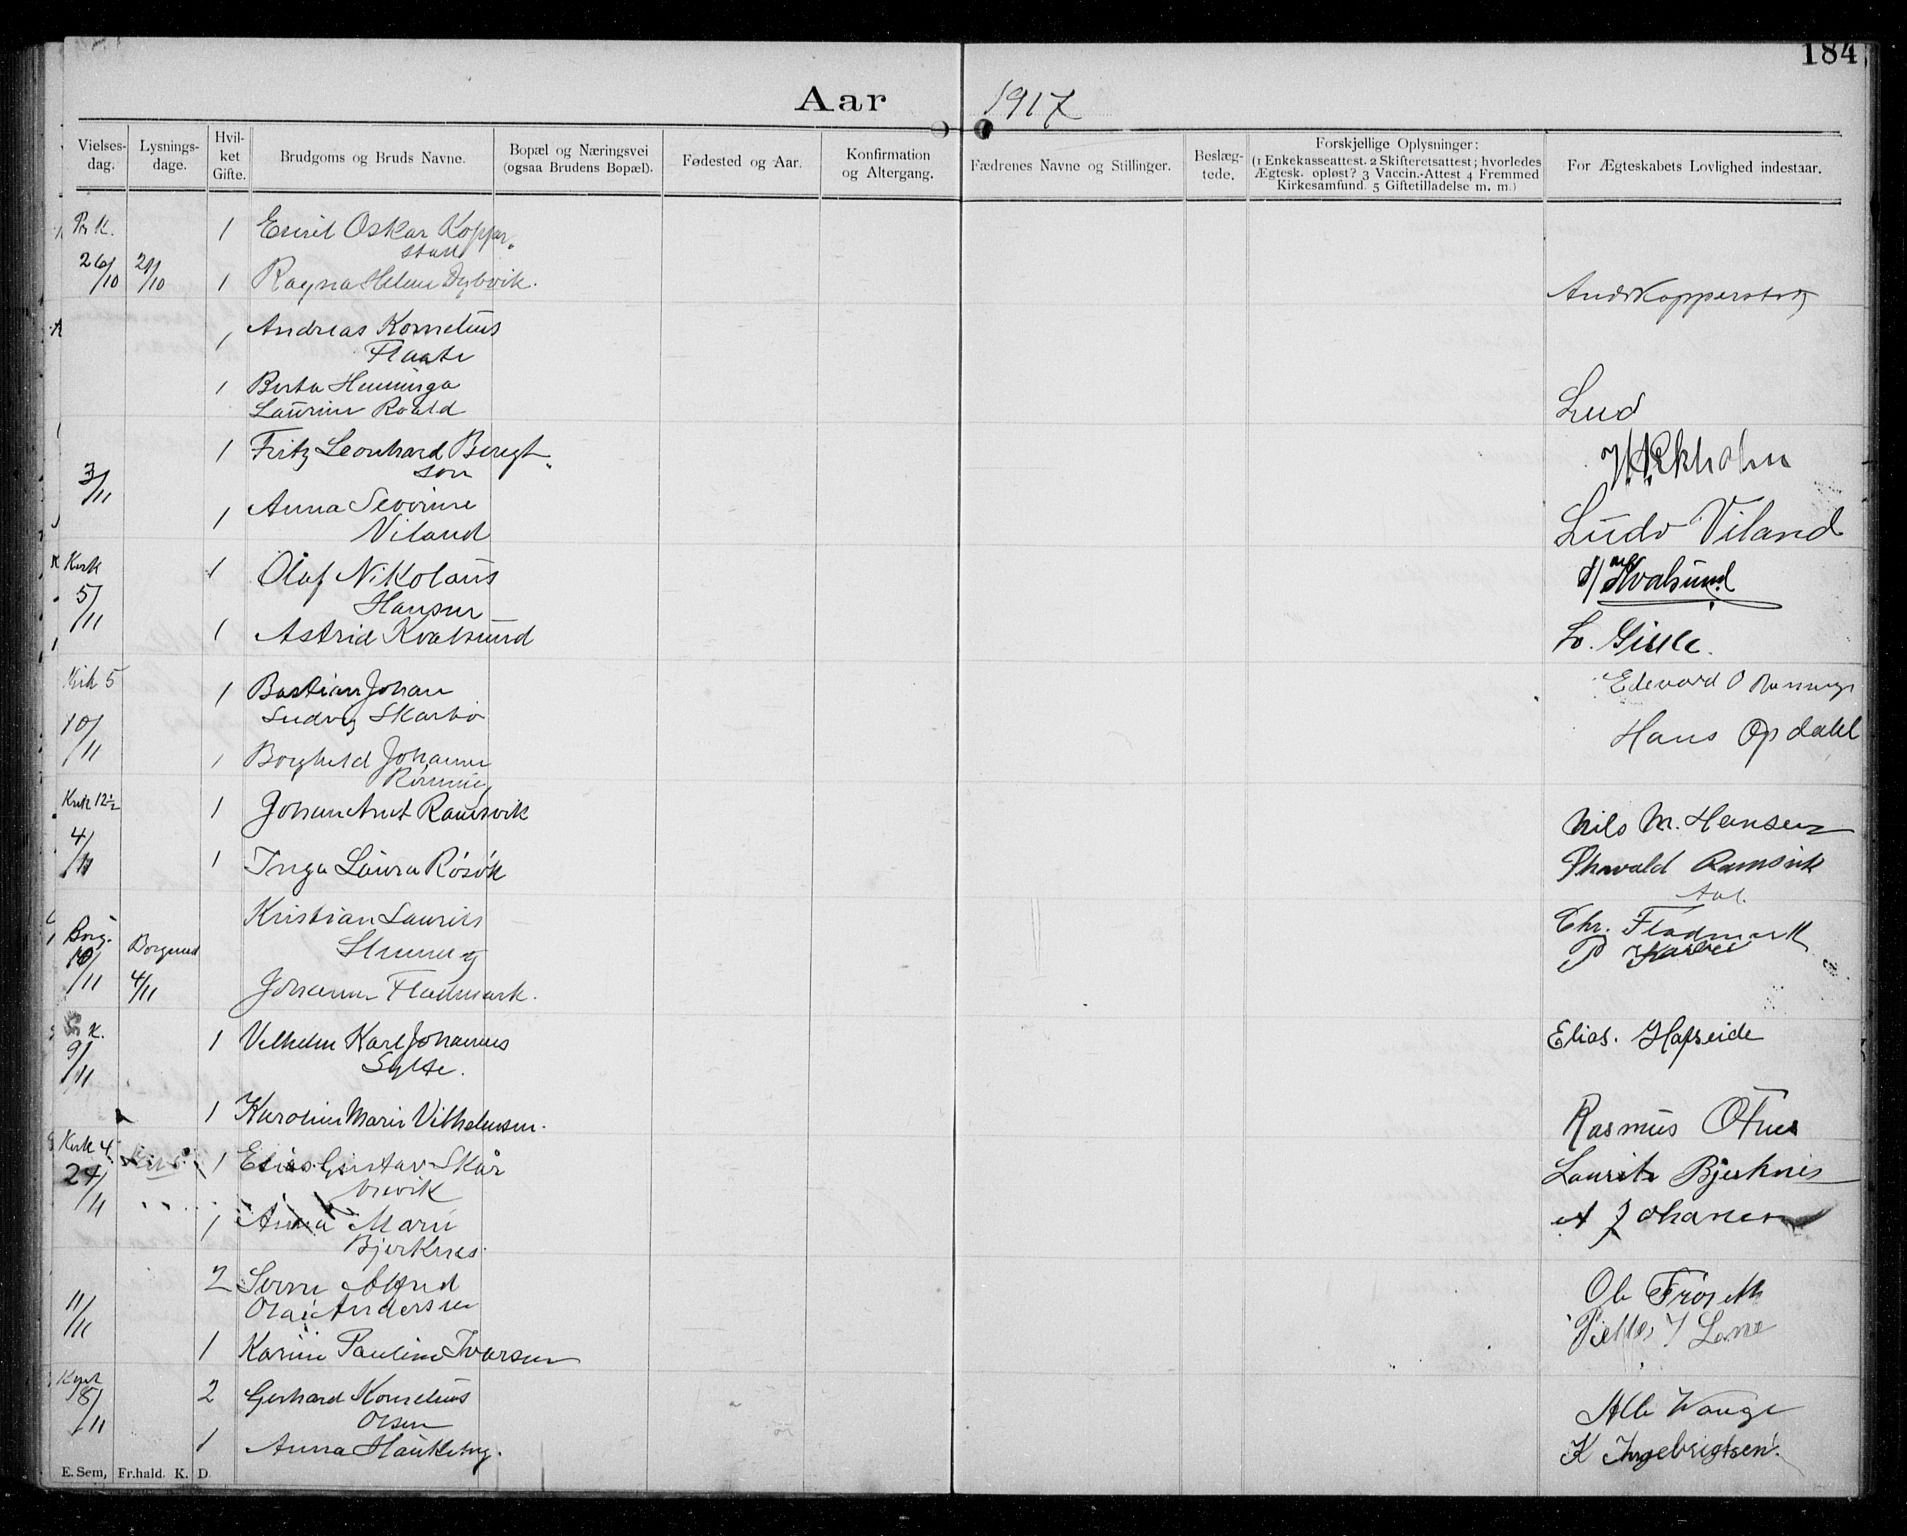 184
Aar 1917
Vielses-dag. Lysnings-dage. Hvil-ket Gifte. Brudgoms og Bruds Navne. Bopæl og Næringsvei (ogsaa Brudens Bopæl). Fødested og Aar. Konfirmation og Altergang. Fædrenes Navne og Stillinger. Beslæg-tede. Forskjellige Oplysninger: (1 Enkekasseattest. 2 Skifteretsattest; hvorledes Ægtesk. opløst? 3 Vaccin.-Attest 4 Fremmed Kirkesamfund. 5 Giftetilladelse m. m.) For Ægteskabets Lovlighed indestaar.
1 Emil Oskar Kopper-
stad
26/10 21/10 1 Ragna Helene Dybvik.
1 Andreas Kornelius
Flaate
1 Berta Henninga
Laurine Roald
Lud
1 Fritz Leonhard Bengt-
son
3/11
1 Anna Severine
Viland
Ludv Viland
Kirk 1 Olaf Nikolaus
5/11 Hansen
1 Astrid Kvalsund
Kvalsund
L. Giske.
Kirk 5 1 Bastian Johan
Ludvig Skarbø
10/11
1 Borghild Johanne
Rønning
Hans Opdahl
Kirk 12½ 1 Johan Arnt Ramsvik
Nils M. Hansen
4/11 1 Inga Laura Røsok
Ramsvik
Kristian Laurits
Borg. 10/11 Borgund 4/11
Johanne Fladmark.
Chr. Fladmark
K.
9/11 1 Vilhelm Karl Johannes
Sylte.
Elias. Hofseide
1 Karoline Marie Vilhelmsen.
Rasmus
Kirk 4
24/11 1 Elias Gustav Skår
Lauritz Bjerknes
1 Anna Marie
Bjerknes.
A Johansen
2 Sverre Alfred
11/11 Olai Andersen
1 Karine Pauline Ivarsen
Ole Frøseth
8/11 2 Gerhard Kornelius
Olsen
1 Anna Haukeberg.
K Ingebrigtsen.
E. Sem, Fr.hald. K. D.